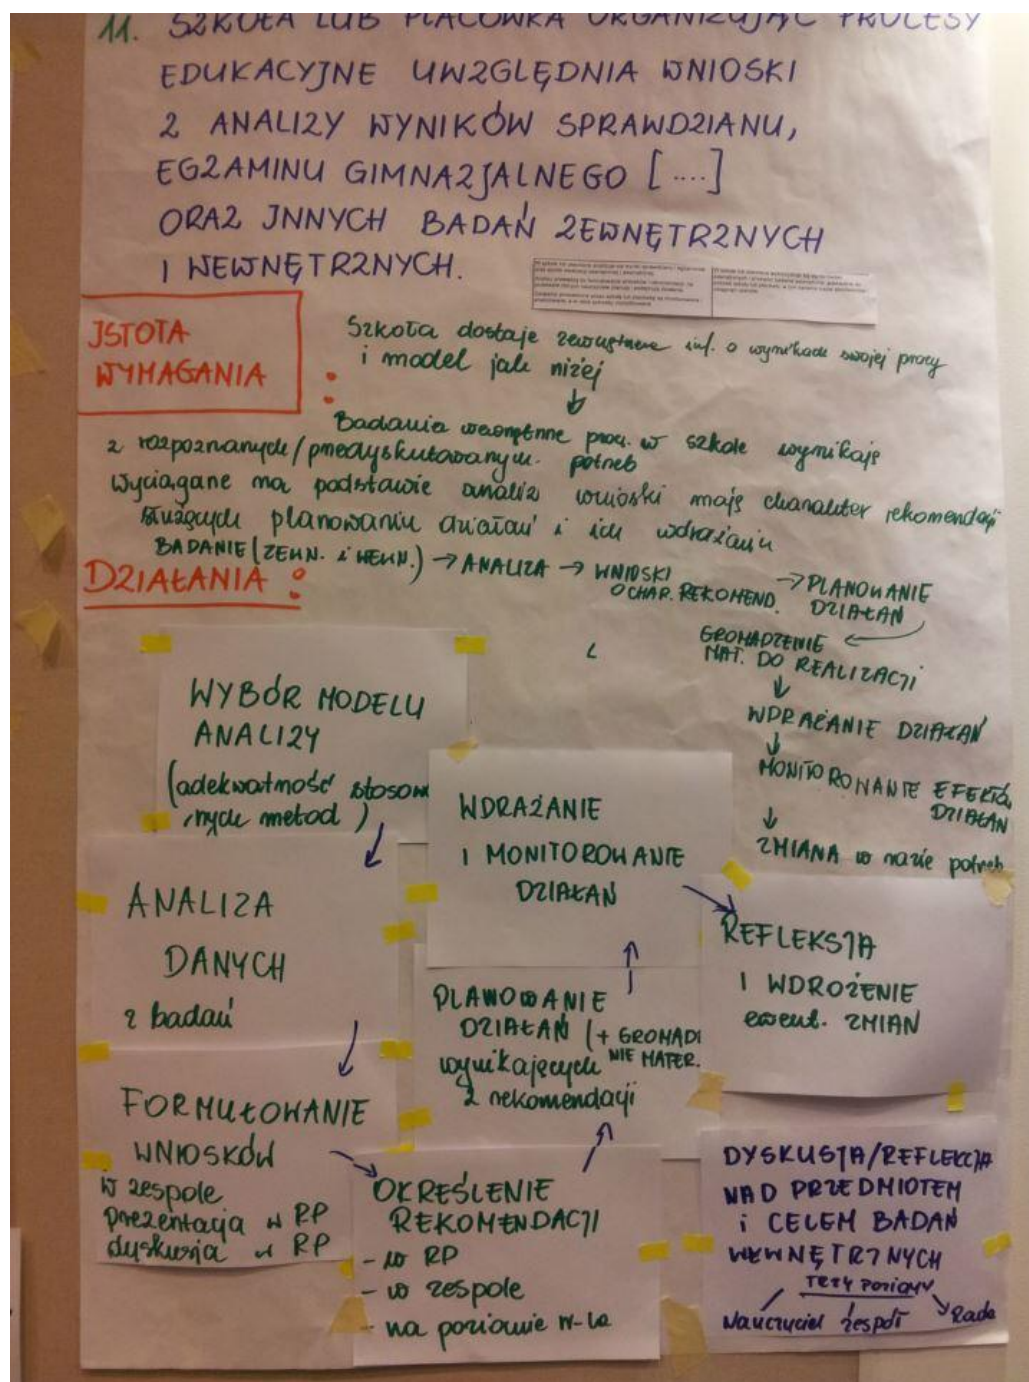 11. SZKOŁA LUB PLACÓWKA ORGANIZUJĄC PROCESY
EDUKACYJNE UWZGLĘDNIA WNIOSKI
Z ANALIZY WYNIKÓW SPRAWDZIANU,
EGZAMINU GIMNAZJALNEGO [....]
ORAZ INNYCH BADAŃ ZEWNĘTRZNYCH
I WEWNĘTRZNYCH.
ISTOTA
WYMAGANIA :
Szkoła dostaje zewnętrzne inf. o wynikach swojej pracy
i model jak niżej
↓
Badania wewnętrzne prow. w szkole wynikają
z rozpoznanych/przedyskutowanych potrzeb
Wyciągane na podstawie analiz wnioski mają charakter rekomendacji
służących planowaniu działań i ich wdrażaniu
DZIAŁANIA :
BADANIE (ZEWN. i WEWN.) → ANALIZA → WNIOSKI
O CHAR. REKOMEND. → PLANOWANIE
DZIAŁAŃ
GROMADZENIE
MAT. DO REALIZACJI
↓
WDRAŻANIE DZIAŁAŃ
↓
MONITOROWANIE EFEKTÓW
DZIAŁAŃ
↓
ZMIANA w razie potrzeb
WYBÓR MODELU
ANALIZY
(adekwatność stosowa
nych metod)
ANALIZA
DANYCH
z badań
FORMUŁOWANIE
WNIOSKÓW
w zespole
prezentacja w RP
dyskusja w RP
OKREŚLENIE
REKOMENDACJI
- w RP
- w zespole
- na poziomie n-la
PLANOWANIE
DZIAŁAŃ (+ GROMADZ
NIE MATER.
wynikających
z rekomendacji
WDRAŻANIE
I MONITOROWANIE
DZIAŁAŃ
REFLEKSJA
I WDROŻENIE
ewent. ZMIAN
DYSKUSJA/REFLEKCJA
NAD PRZEDMIOTEM
i CELEM BADAŃ
WEWNĘTRZNYCH
TRZY POZIOMY
Nauczyciel zespół Rada